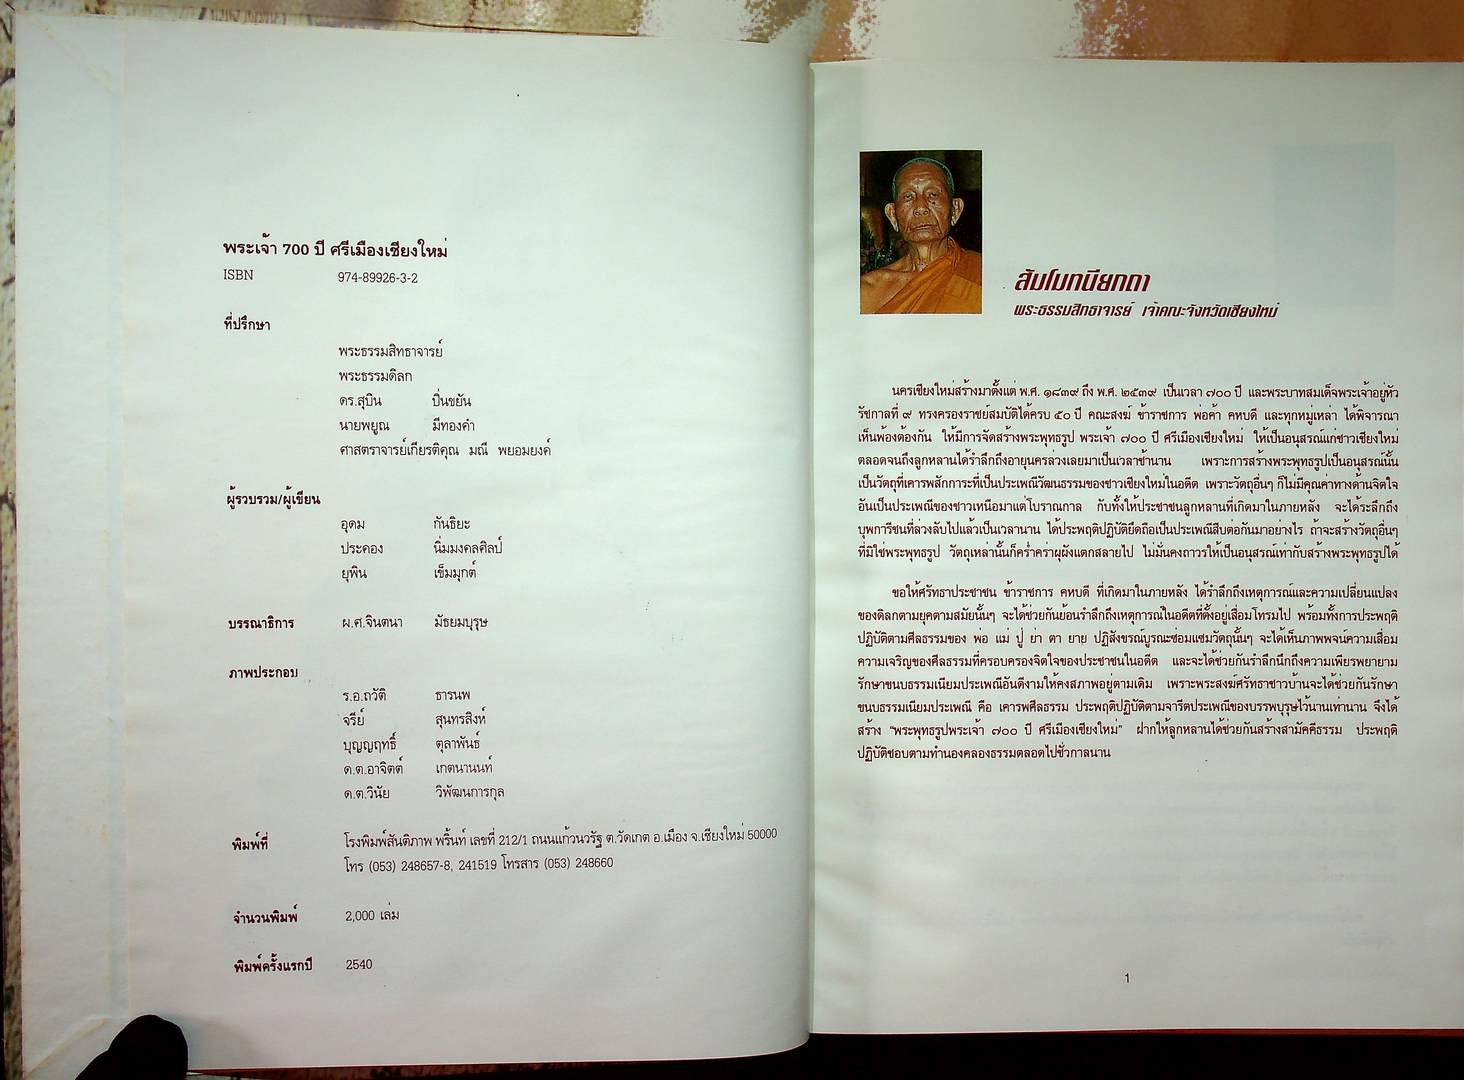 พระเจ้า 700 ปี ศรีเมืองเชียงใหม่
ISBN 974-89926-3-2
ที่ปรึกษา
พระธรรมสิทธาจารย์
พระธรรมดิลก
ดร.สุบิน ปิ่นขยัน
นายพยูณ มีทองคำ
ศาสตราจารย์เกียรติคุณ มณี พยอมยงค์
ผู้รวบรวม/ผู้เขียน
อุดม กันธิยะ
ประคอง นิ่มมงคลศิลป์
ยุพิน เข็มมุกต์
บรรณาธิการ ผ.ศ.จินตนา มัธยมบุรุษ
ภาพประกอบ
ร.อ.ถวัติ ธารนพ
จรีย์ สุนทรสิงห์
บุญญฤทธิ์ ตุลาพันธ์
ด.ต.อาจิตต์ เกตนานนท์
ด.ต.วินัย วิพัฒนการกุล
พิมพ์ที่ โรงพิมพ์สันติภาพ พริ้นท์ เลขที่ 212/1 ถนนแก้วนวรัฐ ต.วัดเกต อ.เมือง จ.เชียงใหม่ 50000
โทร (053) 248657-8, 241519 โทรสาร (053) 248660
จำนวนพิมพ์ 2,000 เล่ม
พิมพ์ครั้งแรกปี 2540
สัมโมทนียกถา
พระธรรมสิทธาจารย์ เจ้าคณะจังหวัดเชียงใหม่
นครเชียงใหม่สร้างมาตั้งแต่ พ.ศ. ๑๘๓๙ ถึง พ.ศ. ๒๕๓๙ เป็นเวลา ๗๐๐ ปี และพระบาทสมเด็จพระเจ้าอยู่หัว
รัชกาลที่ ๙ ทรงครองราชย์สมบัติได้ครบ ๕๐ ปี คณะสงฆ์ ข้าราชการ พ่อค้า คหบดี และทุกหมู่เหล่า ได้พิจารณา
เห็นพ้องต้องกัน ให้มีการจัดสร้างพระพุทธรูป พระเจ้า ๗๐๐ ปี ศรีเมืองเชียงใหม่ ให้เป็นอนุสรณ์แก่ชาวเชียงใหม่
ตลอดจนถึงลูกหลานได้รำลึกถึงอายุนครล่วงเลยมาเป็นเวลาช้านาน เพราะการสร้างพระพุทธรูปเป็นอนุสรณ์นั้น
เป็นวัตถุที่เคารพสักการะที่เป็นประเพณีวัฒนธรรมของชาวเชียงใหม่ในอดีต เพราะวัตถุอื่นๆ ก็ไม่มีคุณค่าทางด้านจิตใจ
อันเป็นประเพณีของชาวเหนือมาแต่โบราณกาล กับทั้งให้ประชาชนลูกหลานที่เกิดมาในภายหลัง จะได้ระลึกถึง
บุพการีชนที่ล่วงลับไปแล้วเป็นเวลานาน ได้ประพฤติปฏิบัติยึดถือเป็นประเพณีสืบต่อกันมาอย่างไร ถ้าจะสร้างวัตถุอื่นๆ
ที่มิใช่พระพุทธรูป วัตถุเหล่านั้นก็คร่ำคร่าผุผังแตกสลายไป ไม่มั่นคงถาวรให้เป็นอนุสรณ์เท่ากับสร้างพระพุทธรูปได้
ขอให้ศรัทธาประชาชน ข้าราชการ คหบดี ที่เกิดมาในภายหลัง ได้รำลึกถึงเหตุการณ์และความเปลี่ยนแปลง
ของดิลกตามยุคตามสมัยนั้นๆ จะได้ช่วยกันย้อนรำลึกถึงเหตุการณ์ในอดีตที่ตั้งอยู่เสื่อมโทรมไป พร้อมทั้งการประพฤติ
ปฏิบัติตามศีลธรรมของ พ่อ แม่ ปู่ ย่า ตา ยาย ปฏิสังขรณ์บูรณะซ่อมแซมวัตถุนั้นๆ จะได้เห็นภาพพจน์ความเสื่อม
ความเจริญของศีลธรรมที่ครอบครองจิตใจของประชาชนในอดีต และจะได้ช่วยกันรำลึกนึกถึงความเพียรพยายาม
รักษาขนบธรรมเนียมประเพณีอันดีงามให้คงสภาพอยู่ตามเดิม เพราะพระสงฆ์ศรัทธาชาวบ้านจะได้ช่วยกันรักษา
ขนบธรรมเนียมประเพณี คือ เคารพศีลธรรม ประพฤติปฏิบัติตามจารีตประเพณีของบรรพบุรุษไว้นานเท่านาน จึงได้
สร้าง "พระพุทธรูปพระเจ้า ๗๐๐ ปี ศรีเมืองเชียงใหม่" ฝากให้ลูกหลานได้ช่วยกันสร้างสามัคคีธรรม ประพฤติ
ปฏิบัติชอบตามทำนองคลองธรรมตลอดไปชั่วกาลนาน
1